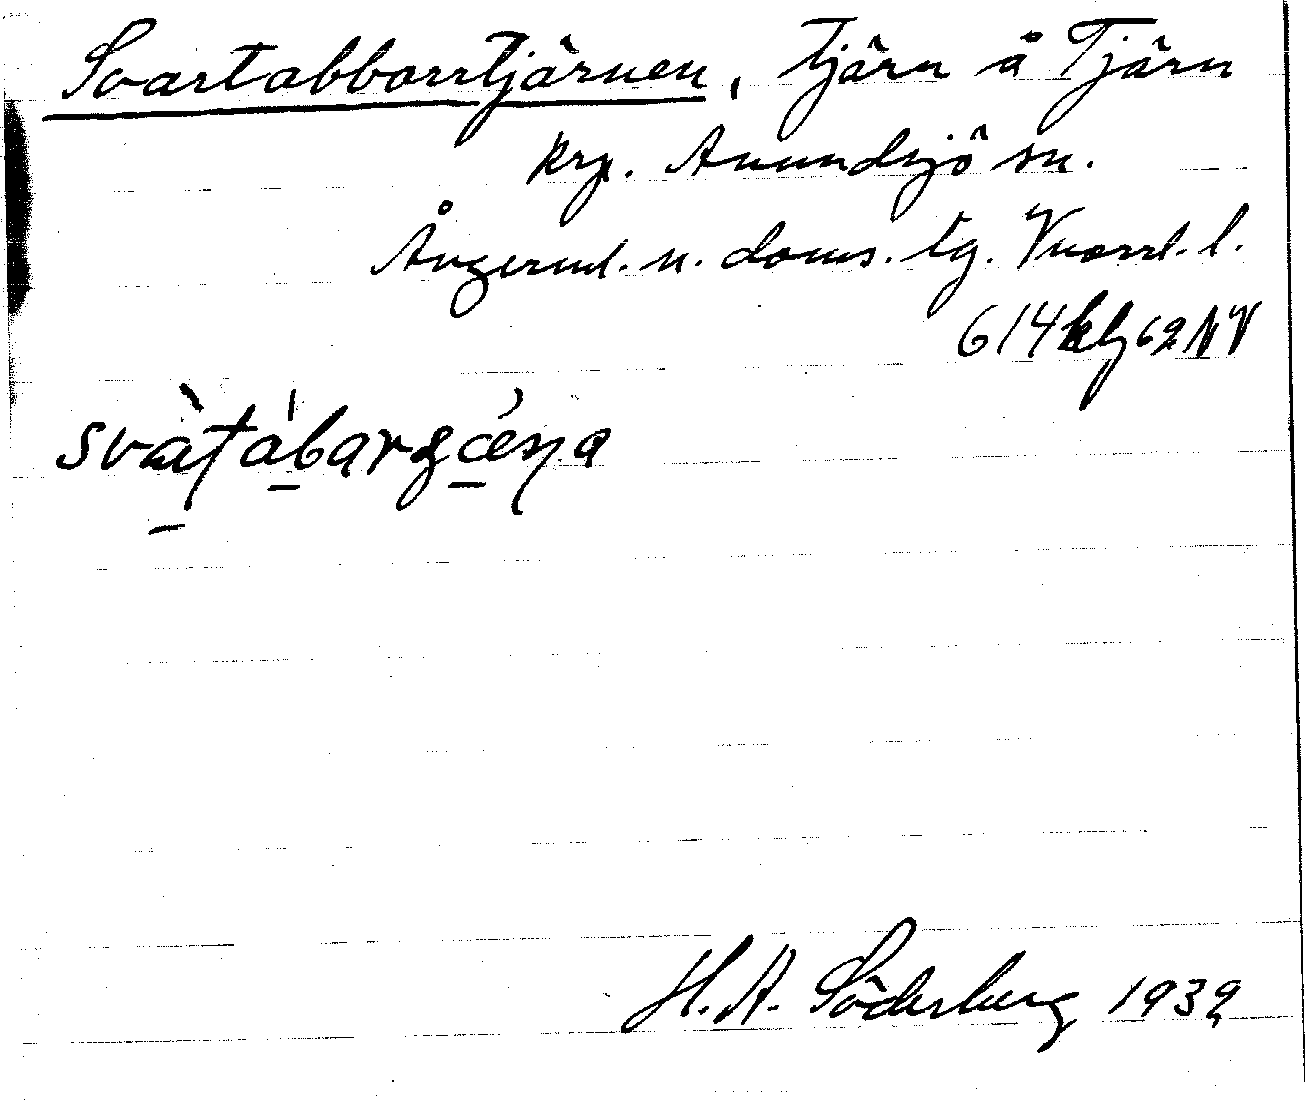 Svartabborrtjärnen, tjärn å Tjärn
krg. Anundsjö sn.
Ångerml. n. doms. tg. Vnorrl. l.
614 62 NV
svàtábarȥœ́ṇa
H. A. Söderberg 1939